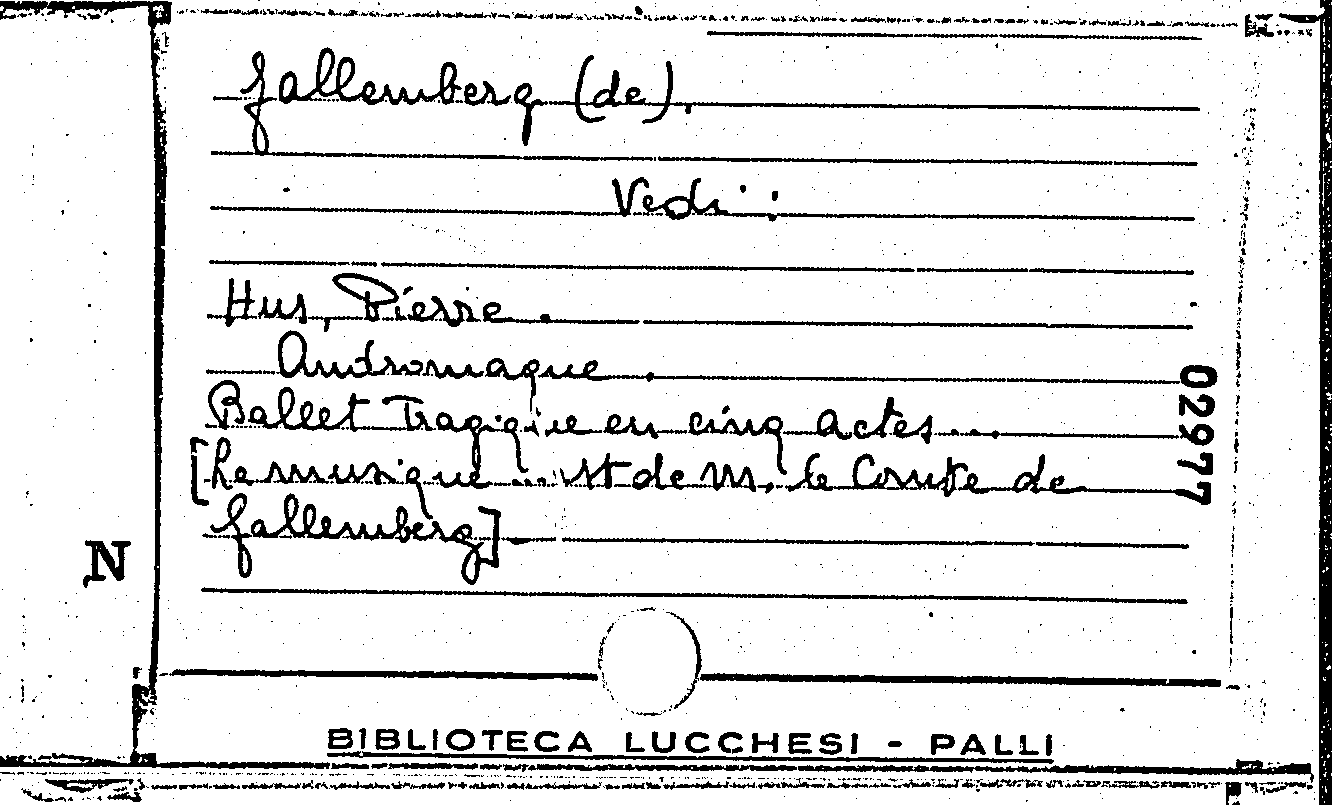 Gallemberg (de).
Vedi:
Hus, Pierre.
Andromaque.
Ballet Tragique en cinq actes...
[La musique ... est de M. le Comte de
Gallemberg].
02977
N
BIBLIOTECA LUCCHESI - PALLI